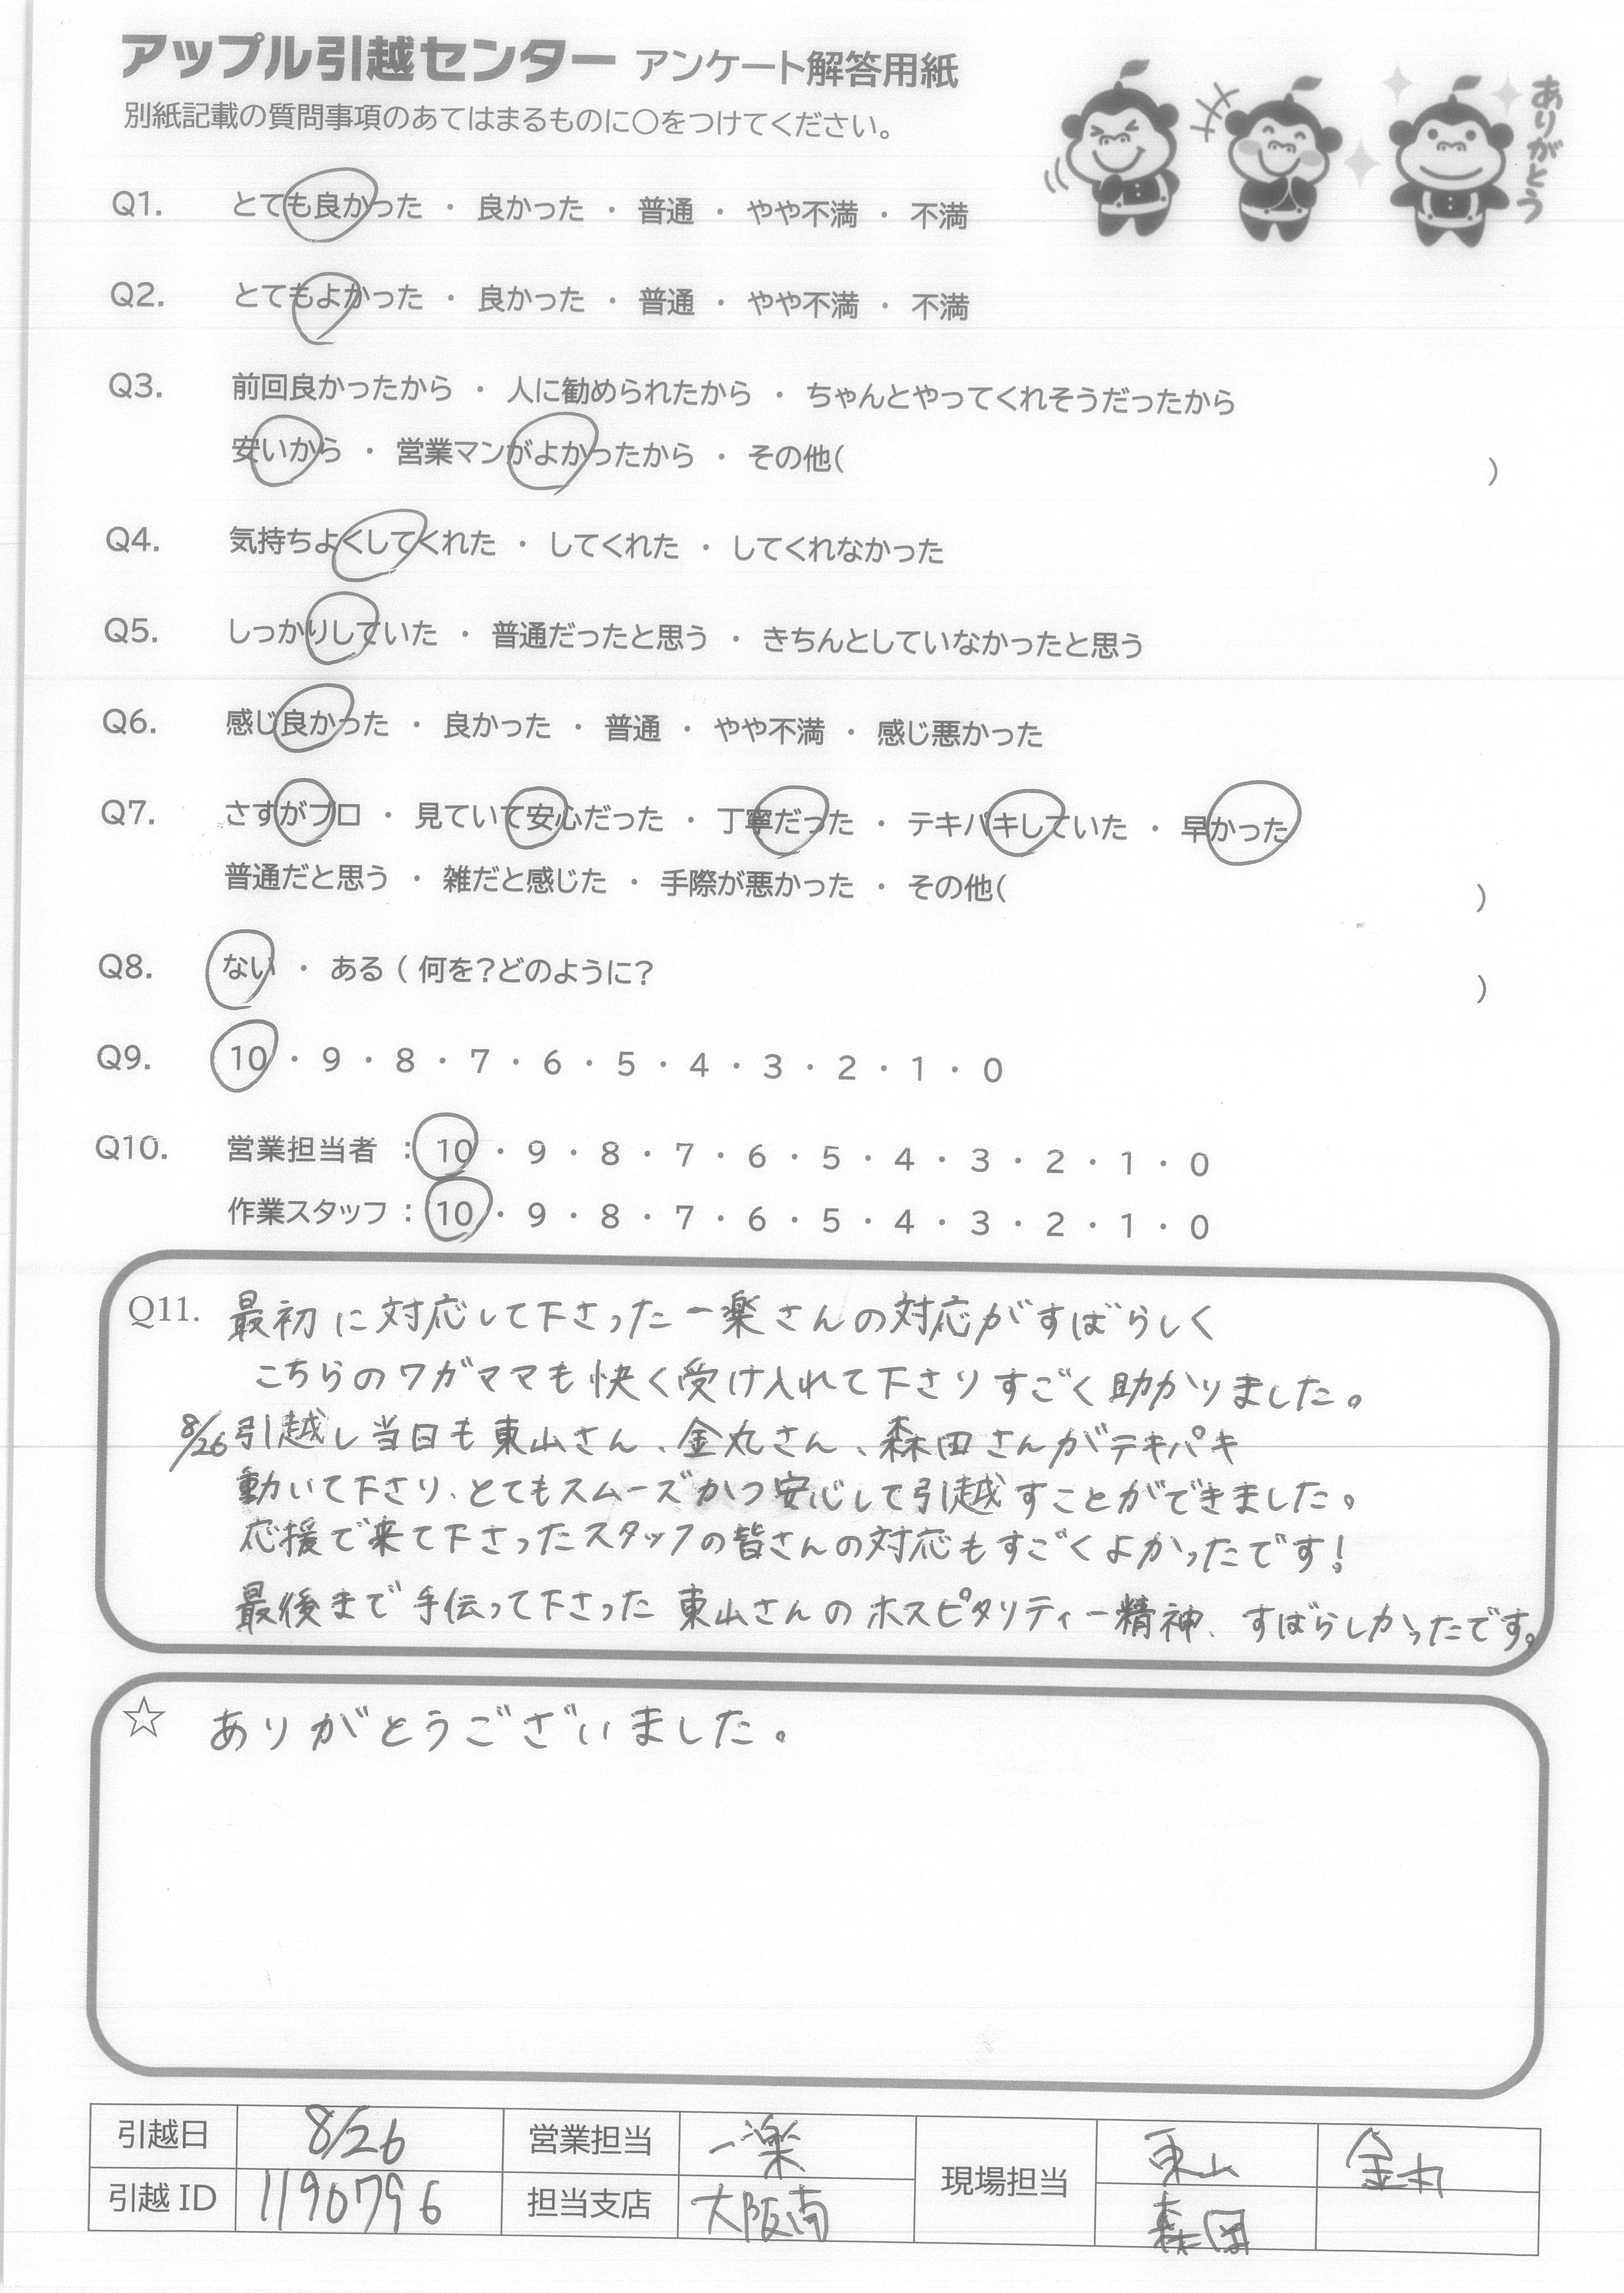 アップル引越センター アンケート解答用紙
別紙記載の質問事項のあてはまるものに〇をつけてください。
ありがとう
Q1. とても良かった ・ 良かった ・ 普通 ・ やや不満 ・ 不満
Q2. とてもよかった ・ 良かった ・ 普通 ・ やや不満 ・ 不満
Q3. 前回良かったから ・ 人に勧められたから ・ ちゃんとやってくれそうだったから
安いから ・ 営業マンがよかったから ・ その他( )
Q4. 気持ちよくしてくれた ・ してくれた ・ してくれなかった
Q5. しっかりしていた ・ 普通だったと思う ・ きちんとしていなかったと思う
Q6. 感じ良かった ・ 良かった ・ 普通 ・ やや不満 ・ 感じ悪かった
Q7. さすがプロ ・ 見ていて安心だった ・ 丁寧だった ・ テキパキしていた ・ 早かった
普通だと思う ・ 雑だと感じた ・ 手際が悪かった ・ その他( )
Q8. ない ・ ある ( 何を?どのように? )
Q9. 10 ・ 9 ・ 8 ・ 7 ・ 6 ・ 5 ・ 4 ・ 3 ・ 2 ・ 1 ・ 0
Q10. 営業担当者 : 10 ・ 9 ・ 8 ・ 7 ・ 6 ・ 5 ・ 4 ・ 3 ・ 2 ・ 1 ・ 0
作業スタッフ : 10 ・ 9 ・ 8 ・ 7 ・ 6 ・ 5 ・ 4 ・ 3 ・ 2 ・ 1 ・ 0
Q11. 最初に対応して下さった一楽さんの対応がすばらしく
こちらのワガママも快く受け入れて下さりすごく助かりました。
8/26引越し当日も東山さん、金丸さん、森田さんがテキパキ
動いて下さり、とてもスムーズかつ安心して引越すことができました。
応援で来て下さったスタッフの皆さんの対応もすごくよかったです!
最後まで手伝って下さった東山さんのホスピタリティー精神、すばらしかったです。
☆ ありがとうございました。
引越日 8/26 営業担当 一楽 現場担当 東山 金丸
引越ID 1190796 担当支店 大阪南